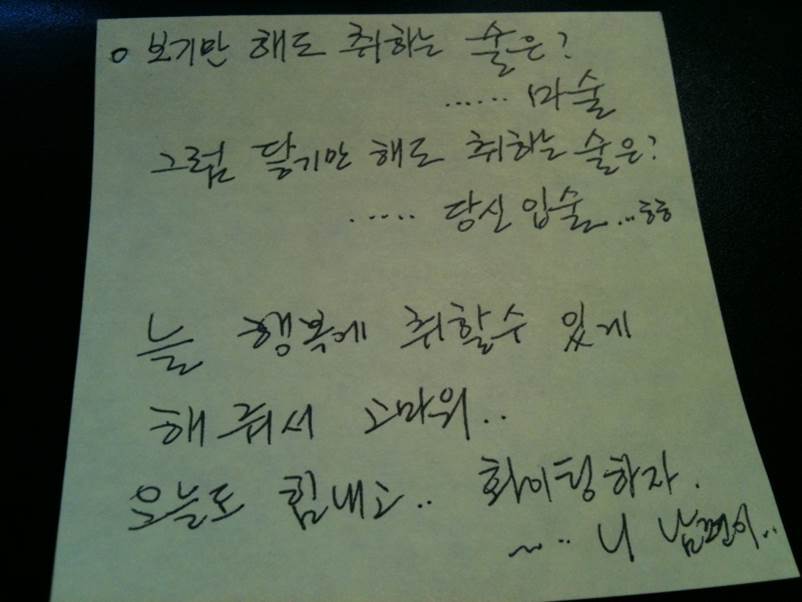 o 보기만 해도 취하는 술은?
...... 마술
그럼 닿기만 해도 취하는 술은?
..... 당신입술...ㅎㅎ
늘 행복에 취할수 있게
해줘서 고마워..
오늘도 힘내고.. 화이팅하자.
~... 니 남편이..